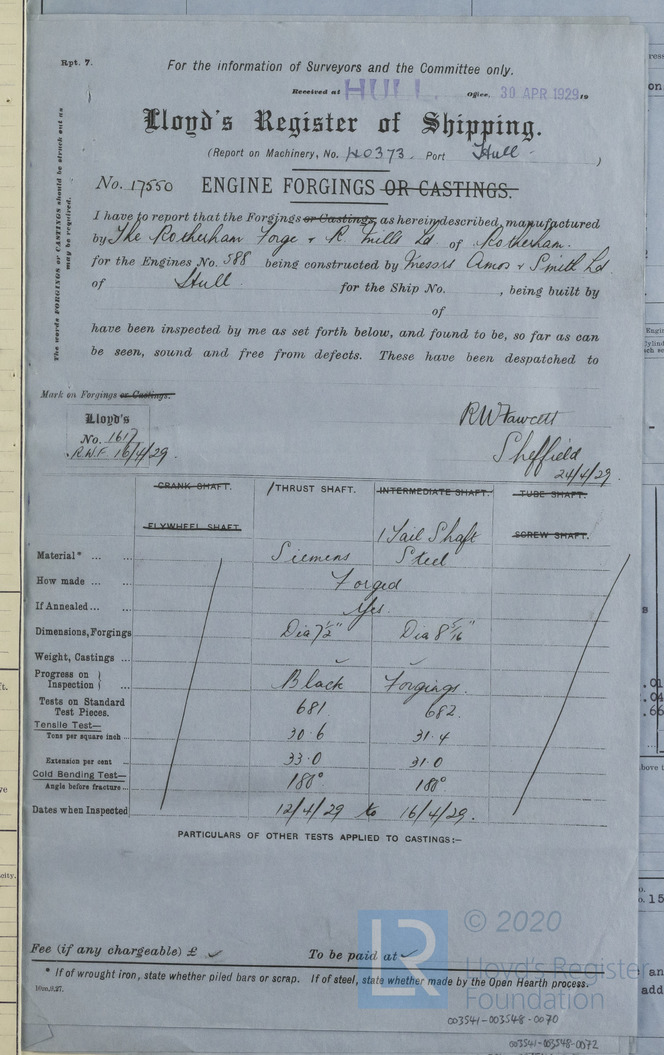 Rpt. 7.
For the information of Surveyors and the Committee only.
Received at HULL Office, 30 APR 1929 19
Lloyd's Register of Shipping.
(Report on Machinery, No. 40373. Port Hull )
No. 17550 ENGINE FORGINGS OR CASTINGS.
The words FORGINGS or CASTINGS should be struck out as
may be required.
I have to report that the Forgings or Castings, as herein described, manufactured
by The Rotherham Forge & R. Mills Ld of Rotherham.
for the Engines No. 588 being constructed by Messrs Amos & Smith Ld
of Hull. for the Ship No. , being built by
of
have been inspected by me as set forth below, and found to be, so far as can
be seen, sound and free from defects. These have been despatched to
Mark on Forgings or Castings.
Lloyd's
No. 1617
R.W.F 16/4/29.
RW Fawcett
Sheffield
24/4/29.
CRANK SHAFT. 1 THRUST SHAFT. INTERMEDIATE SHAFT. TUBE SHAFT.
FLYWHEEL SHAFT 1 Tail Shaft SCREW SHAFT.
Material* ... ... Siemens Steel
How made ... ... Forged
If Annealed ... ... Yes.
Dimensions, Forgings Dia 7 1/2" Dia 8 5/16"
Weight, Castings ...
Progress on Inspection } ... Black Forgings.
Tests on Standard Test Pieces. 681 682.
Tensile Test—
Tons per square inch ... 30.6 31.4
Extension per cent ... 33.0 31.0
Cold Bending Test—
Angle before fracture ... 180° 180°
Dates when Inspected 12/4/29 to 16/4/29.
PARTICULARS OF OTHER TESTS APPLIED TO CASTINGS:—
Fee (if any chargeable) £ To be paid at
* If of wrought iron, state whether piled bars or scrap. If of steel, state whether made by the Open Hearth process.
LR
© 2020
Lloyd's Register
Foundation
003541-003548-0070
003541-003548-0072